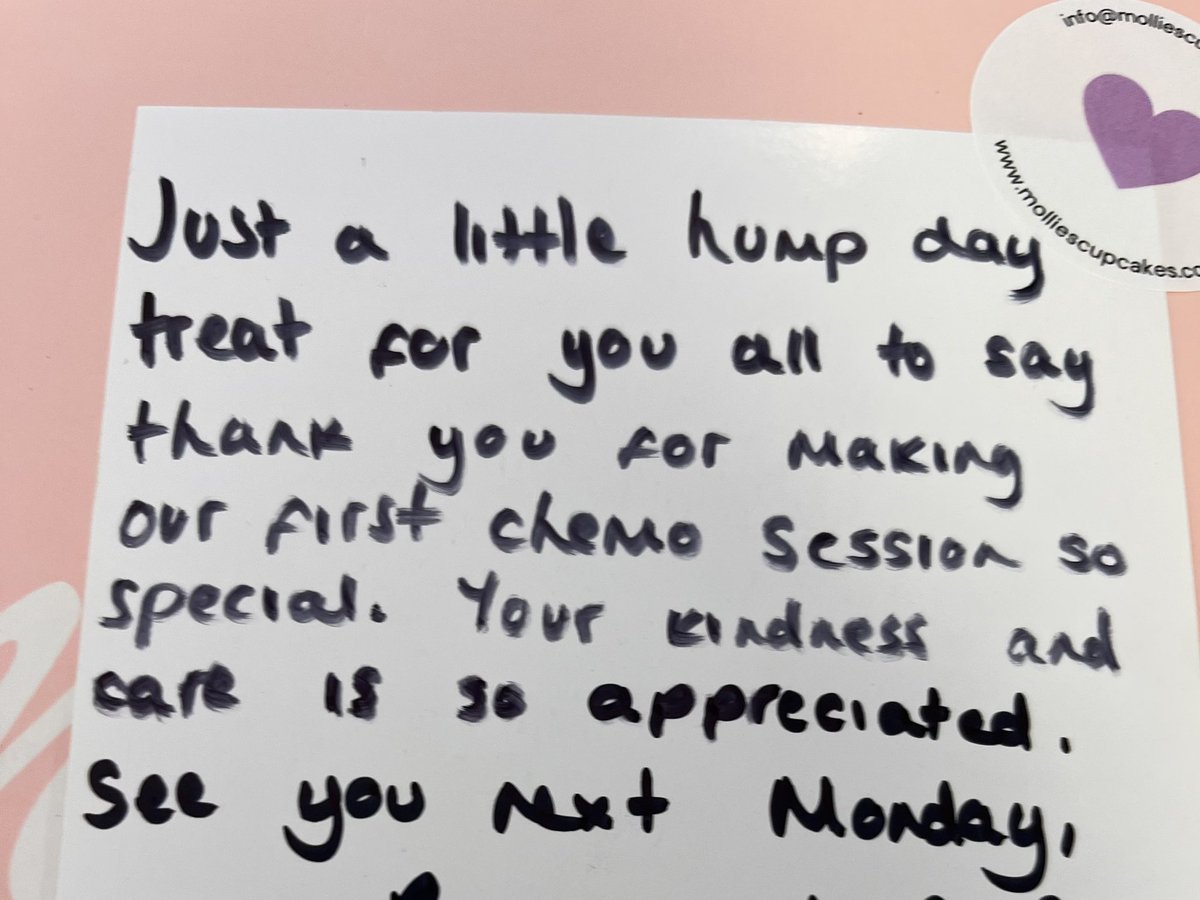 info@molliescu
www.molliescupcakes.co
Just a little hump day
treat for you all to say
thank you for making
our first chemo session so
special. Your kindness and
care is so appreciated.
See you next Monday,